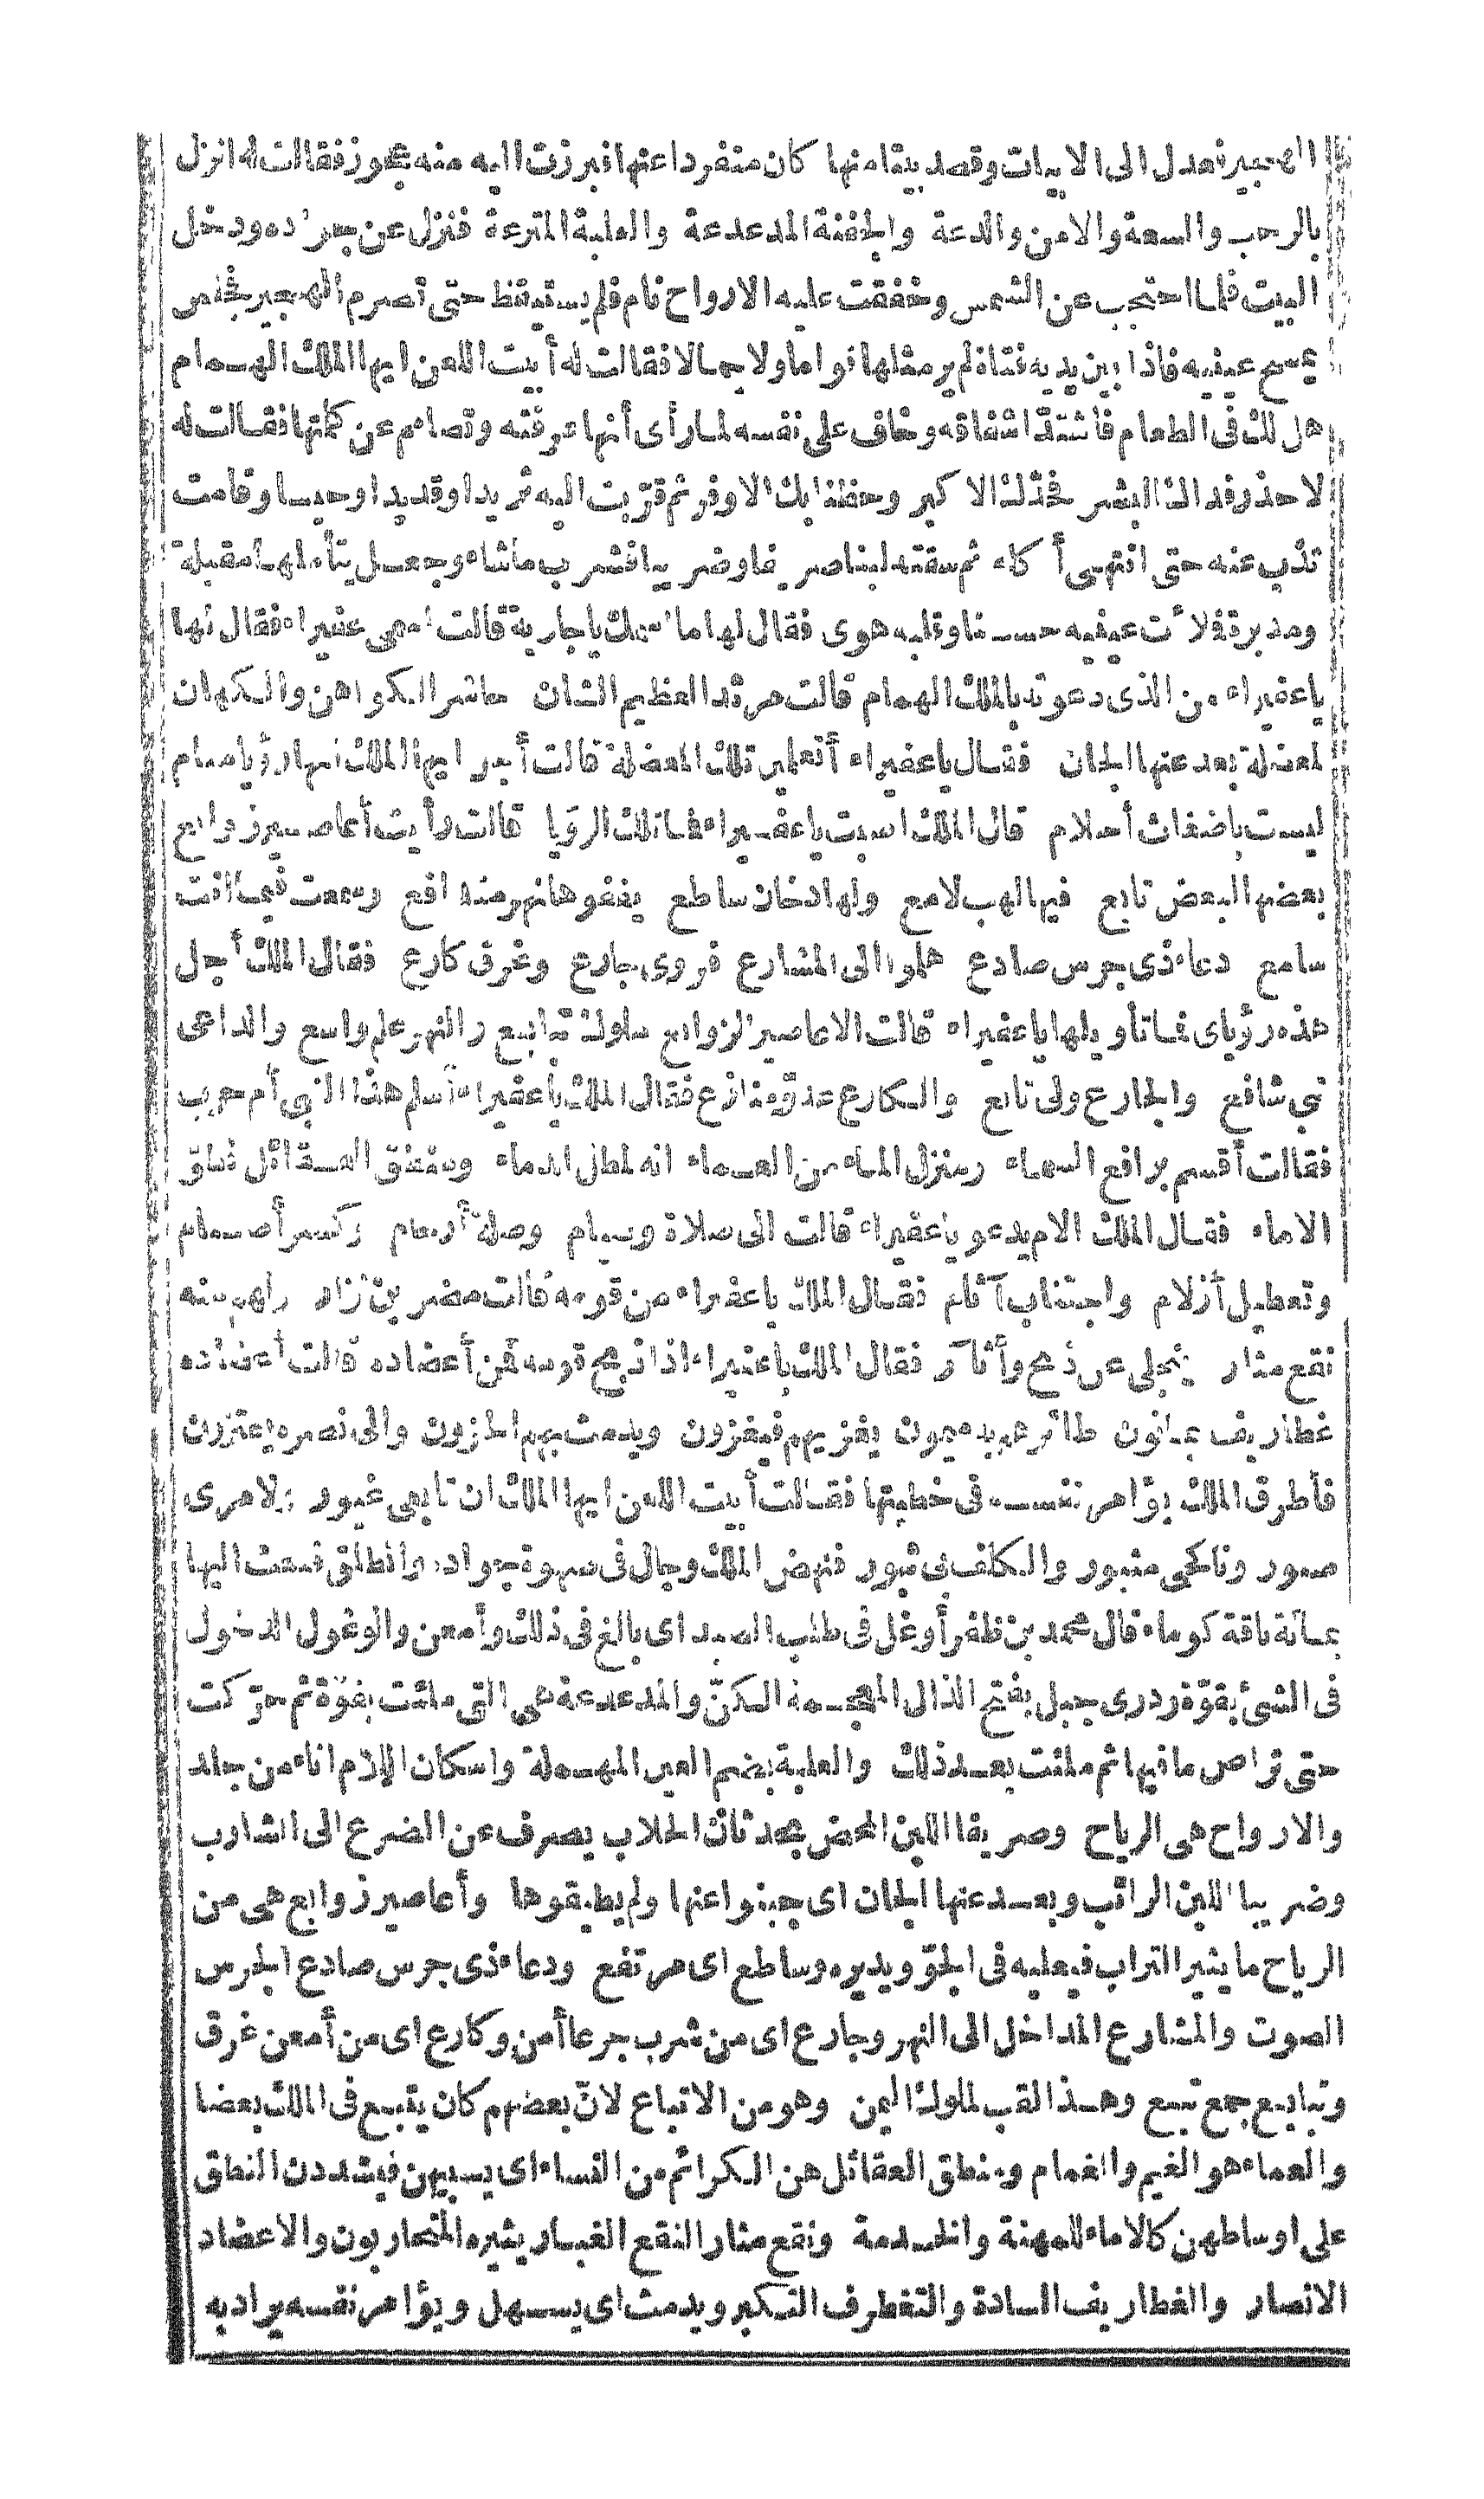 الهجير فعدل الى الابيات وقصد بيتا منها كان منفردا عنها فبرزت اليه منه عجوز فقالت له انزل
بالرحب والسعة والامن والدعة والجفنة المدعدعة والعلبة المترعة فنزل عن جواده ودخل
البيت فلما احتجب عن الشمس وخفقت عليه الارواح نام فلم يستيقظ حتى تصرم الهجير فجلس
يمسح عينيه فاذا بين يديه فتاة لم ير مثلها قواما ولا جمالا فقالت له أبيت اللعن ايها الملك الهمام
هل لك فى الطعام فاشتدّ اشفاقه وخاف على نفسه لما رأى أنها عرفته وتصامم عن كلمتها فقالت له
لا حذر فداك البشر فجدّك الاكبر وحظنا بك الاوفر ثم قرّبت اليه ثريدا وقديدا وحيسا وقامت
تذب عنه حتى انتهى أكله ثم سقته لبنا صريفا وضريبا فشرب ما شاء وجعل يتأملها مقبلة
ومدبرة فملأت عينيه حسنا وقلبه هوى فقال لها ما اسمك يا جارية قالت اسمى عفيراء فقال لها
يا عفيراء من الذى دعوته بالملك الهمام قالت مرثد العظيم الشان حاشر الكواهن والكهان
لمعضلة بعد عنها الجان فقال يا عفيراء أتعلمين تلك المعضلة قالت أجل ايها الملك انها رؤيا منام
ليست باضغاث أحلام قال الملك اصبت يا عفيراء فما تلك الرؤيا قالت رأيت أعاصير زوابع
بعضها لبعض تابع فيها لهب لامع ولها دخان ساطع يقفوها نهر متدافع وسمعت فيما انت
سامع دعاء ذى جرس صادع هلموا الى المشارع فروى جارع وغرق كارع فقال الملك أجل
هذه رؤياى فما تأويلها يا عفيراء قالت الاعاصير الزوابع ملوك تبابع والنهر علم واسع والداعى
نبي شافع والجارع ولى تابع والكارع عدوّ منازع فقال الملك يا عفيراء أسلم هذا النبى أم حرب
فقالت أقسم برافع السماء ومنزل الماء من العماء انه لمطل الدماء ومنطق العقائل نطق
الاماء فقال الملك الام يدعو يا عفيراء قالت الى صلاة وصيام وصلة أرحام وكسر أصنام
وتعطيل أزلام واجتناب آثام فقال الملك يا عفيراء من قومه قالت مضر بن نزار ولهم منه
نقع مثار ينجلى عن ذبح وأثار فقال الملك يا عفيراء اذا ذبح قومه فمن أعضاده قالت أعضاده
غطاريف يمانون طائرهم به ميمون يغزيهم فيغزون ويدمث بهم الحزون والى نصره يعتزون
فأطرق الملك يؤامر نفسه فى خطبتها فقالت أبيت اللعن ايها الملك ان تابعى غيور ولامرى
صبور وناكحى مثبور والكلف بى ثبور فنهض الملك وجال فى صهوة جواده وانطلق فبعث اليها
بمائة ناقة كوماء قال محمد بن ظفر أوغل فى طلب الصيد اى بالغ فى ذلك وأمعن والوغول الدخول
فى الشئ بقوّة وذرى جبل بفتح الذال المعجمة الكنّ والمدعدعة هى التى ملئت بقوّة ثم حرّكت
حتى تراص ما فيها ثم ملئت بعد ذلك والعلبة بضم العين المهملة واسكان اللام اناء من جلد
والارواح هى الرياح وصريفا اللبن المحض بحدثان الحلاب يصرف عن الضرع الى الشارب
وضريبا اللبن الرائب وبعد عنها الجان اى جبنوا عنها ولم يطيقوها وأعاصير زوابع هى من
الرياح ما يثير التراب فيعليه فى الجوّ ويديره وساطع اى مرتفع ودعاء ذى جرس صادع الجرس
الصوت والمشارع المداخل الى النهر وجارع اى من شرب جرعا أمن وكارع اى من أمعن غرق
وتبابيع جمع تبيع وهذا لقب لملوك اليمن وهو من الاتباع لانّ بعضهم كان يتبع فى الملك بعضا
والعماء هو الغيم والغمام ومنطق العقائل هن الكرائم من النساء اى يسبيهن فيشددن النطاق
على اوساطهن كالاماء للمهنة والخدمة ونقع مثار النقع الغبار يثيره المتحاربون والاعضاد
الانصار والغطاريف السادة والتغطرف التكبر ويدمث اى يسهل ويؤامر نفسه يراد به